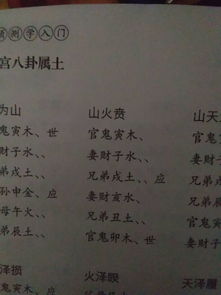 测学入门
宫八卦属土
为山 山火贲 山天
鬼寅木、世 官鬼寅木、 官鬼
财子水、、 妻财子水、、 妻财
弟戌土、、 兄弟戌土、、应 兄弟
孙申金、应 妻财亥水、 兄弟
母午火、、 兄弟丑土、、 官鬼
弟辰土、、 官鬼卯木、世 妻财
泽损 火泽睽 天泽履